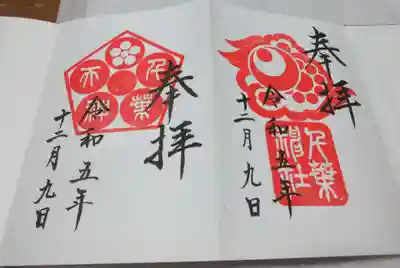 奉拝
令和五年
十二月九日
千葉
神社
奉拝
令和五年
十二月九日
千葉
天神